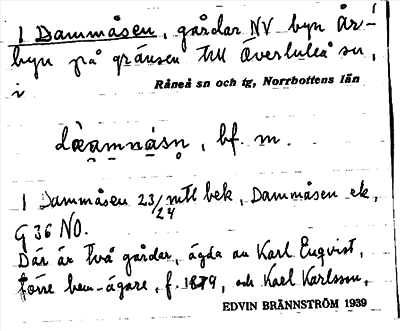 1 Dammåsen, gårdar NV byn År-
byn på gränsen till Överluleå sn,
i
Råneå sn och tg, Norrbottens län
dàamnásn, bf. m.
1 Dammåsen 23/24 mtl bek, Dammåsen ek,
G 36 NO.
Där är två gårdar, ägda av Karl Enqvist,
förre hem.-ägare, f. 1879, och Karl Karlsson.
EDVIN BRÄNNSTRÖM 1939